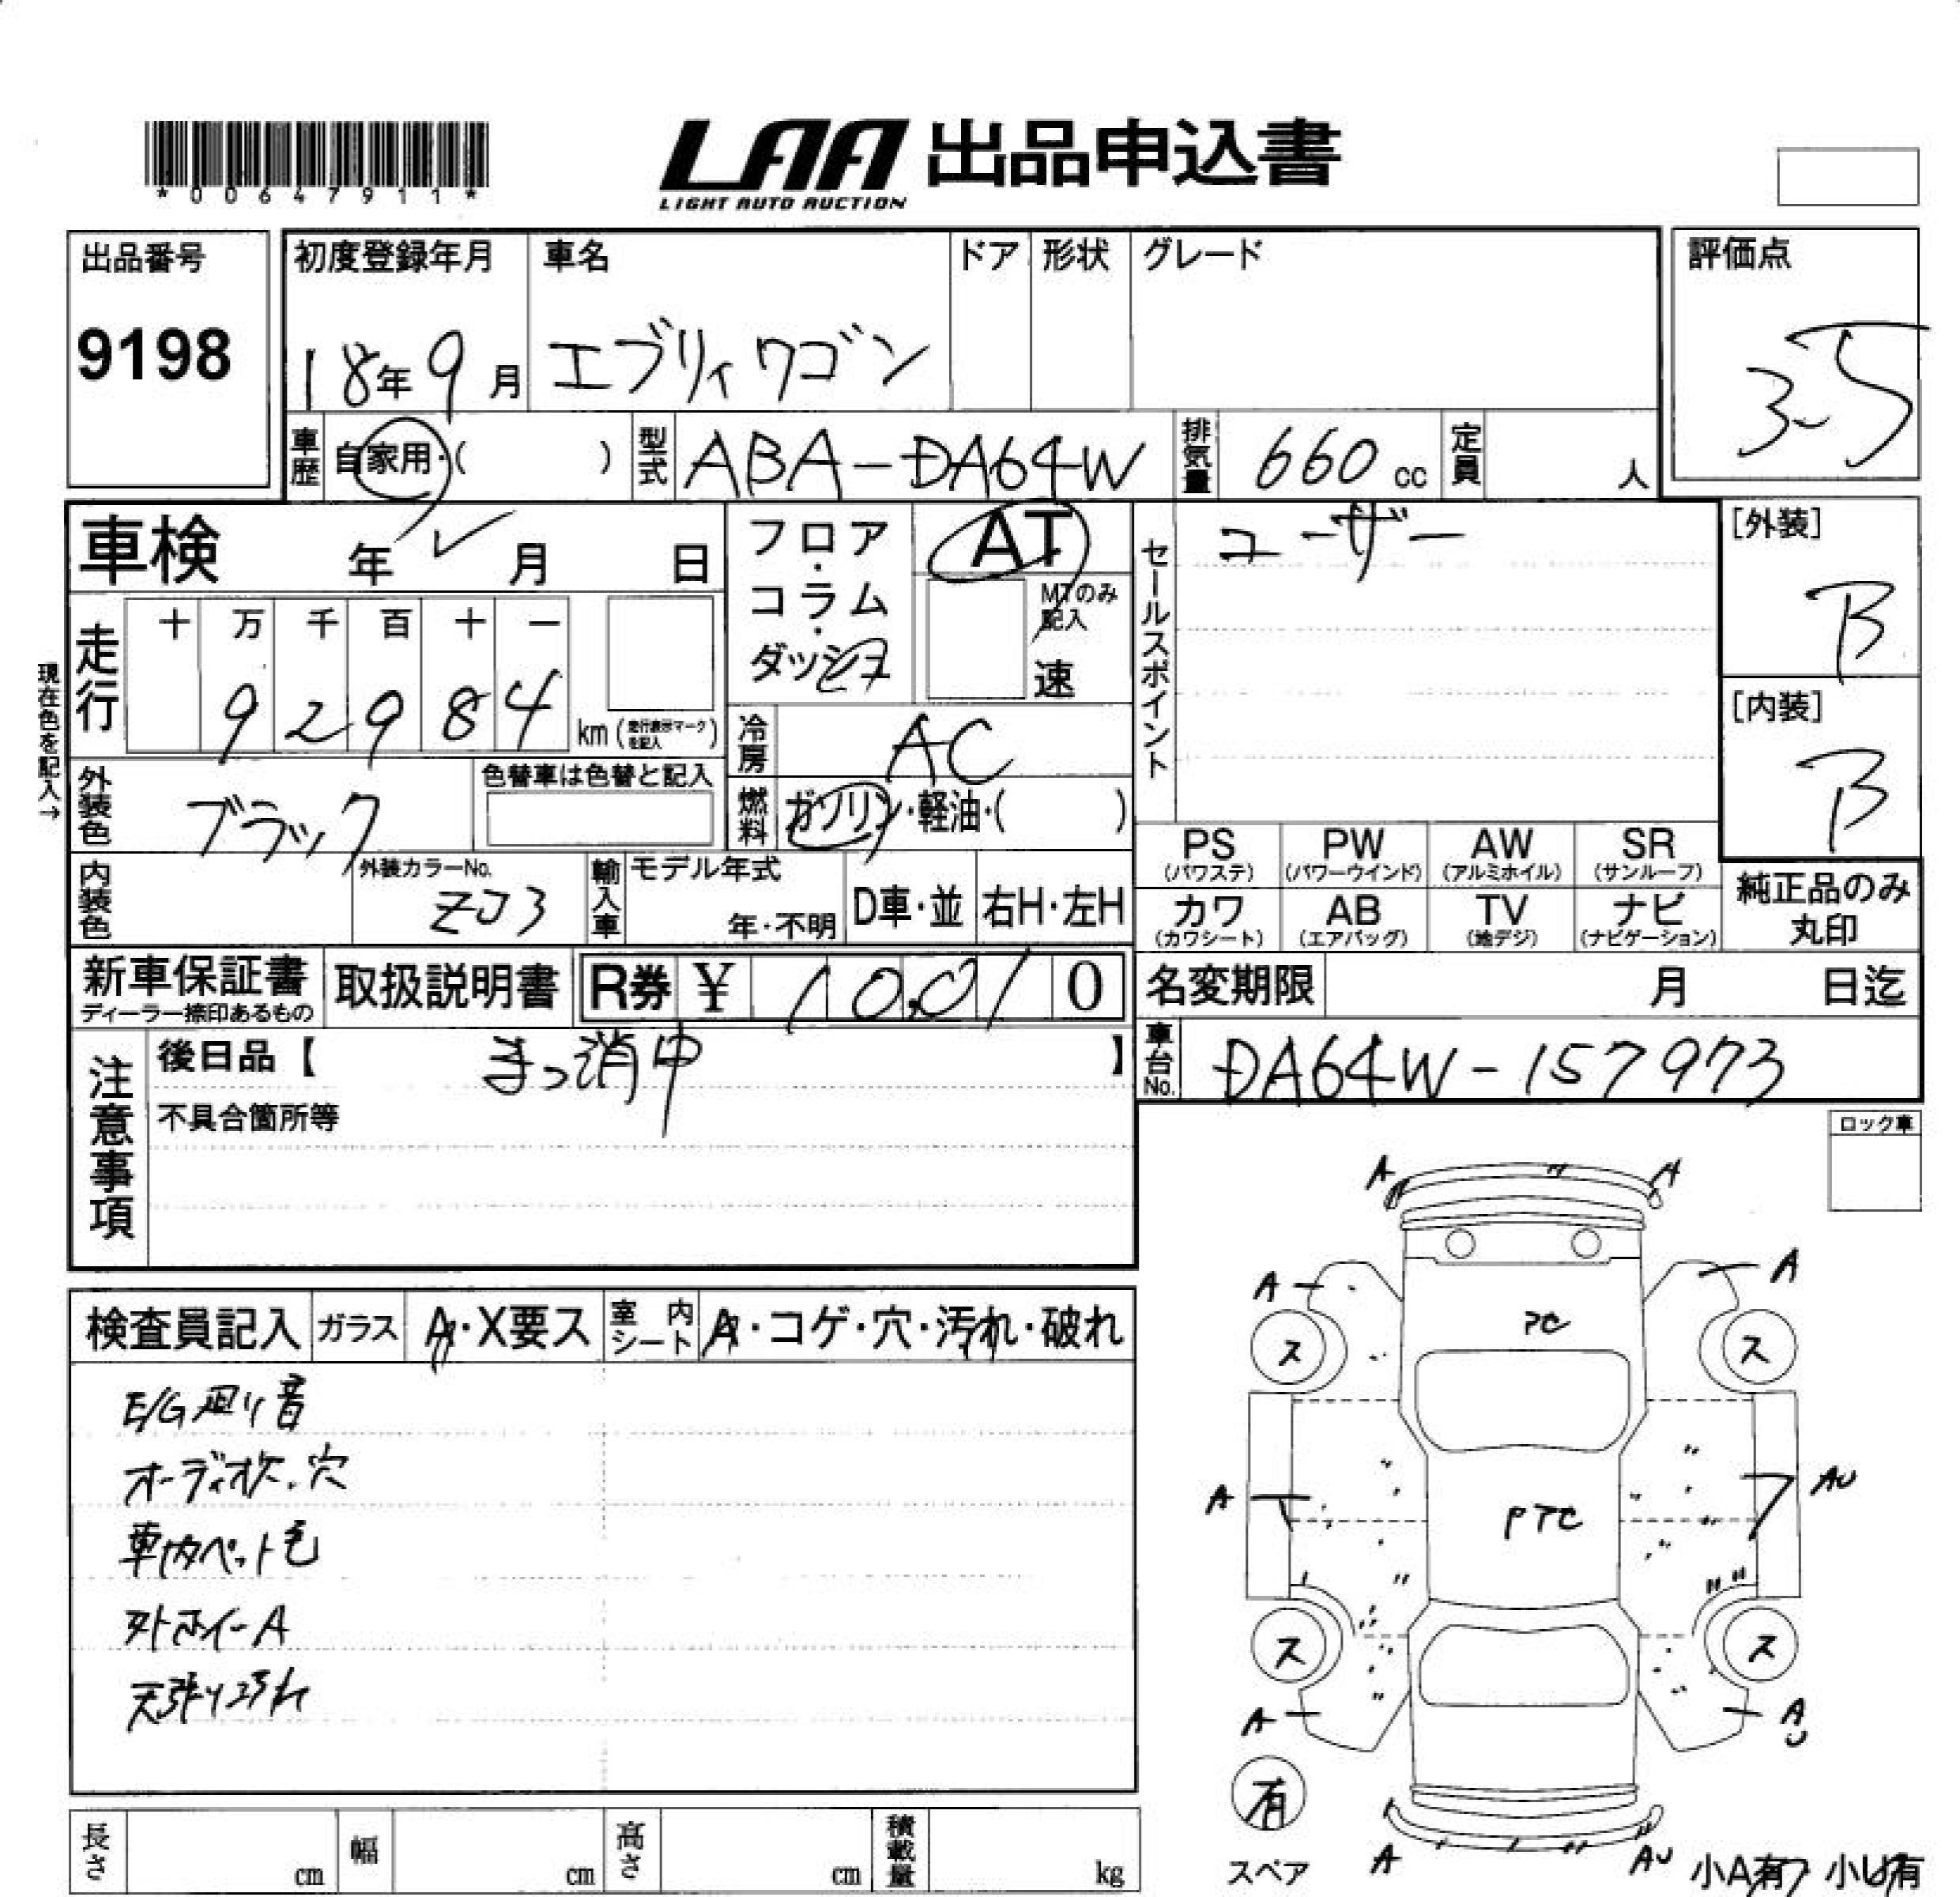 *00647911*
LAA 出品申込書
LIGHT AUTO AUCTION
出品番号
9198
初度登録年月 車名 ドア 形状 グレード
18年9月 エブリィワゴン
評価点
3.5
車歴 自家用・( ) 型式 ABA-DA64W 排気量 660cc 定員 人
車検 年 月 日
フロア・コラム・ダッシュ
AT
MTのみ記入
速
セールスポイント
ユーザー
[外装]
B
[内装]
B
現在色を記入→
走行 十 万 千 百 十 一
9 2 9 8 4 km (走行表示マークを記入)
冷房 AC
燃料 ガソリン・軽油・( )
外装色 ブラック
色替車は色替と記入
内装色
外装カラーNo.
ZJ3
輸入車 モデル年式
年・不明
D車・並 右H・左H
PS (パワステ) PW (パワーウインド) AW (アルミホイル) SR (サンルーフ)
カワ (カワシート) AB (エアバッグ) TV (地デジ) ナビ (ナビゲーション)
純正品のみ丸印
新車保証書
ディーラー捺印あるもの
取扱説明書
R券 ¥ 10,010
名変期限 月 日迄
車台No. DA64W-157973
注意事項
後日品【 まっ消中 】
不具合箇所等
ロック車
検査員記入 ガラス A・X要ス 室内シート A・コゲ・穴・汚れ・破れ
E/G廻り音
オーディオケ.穴
車内ペット毛
外ホイールA
天張り汚れ
A A
A A
PC
ス ス
A AU
PTC
ス ス
A AU
有
スペア
A AU
小A有 小U有
長さ cm 幅 cm 高さ cm 積載量 kg